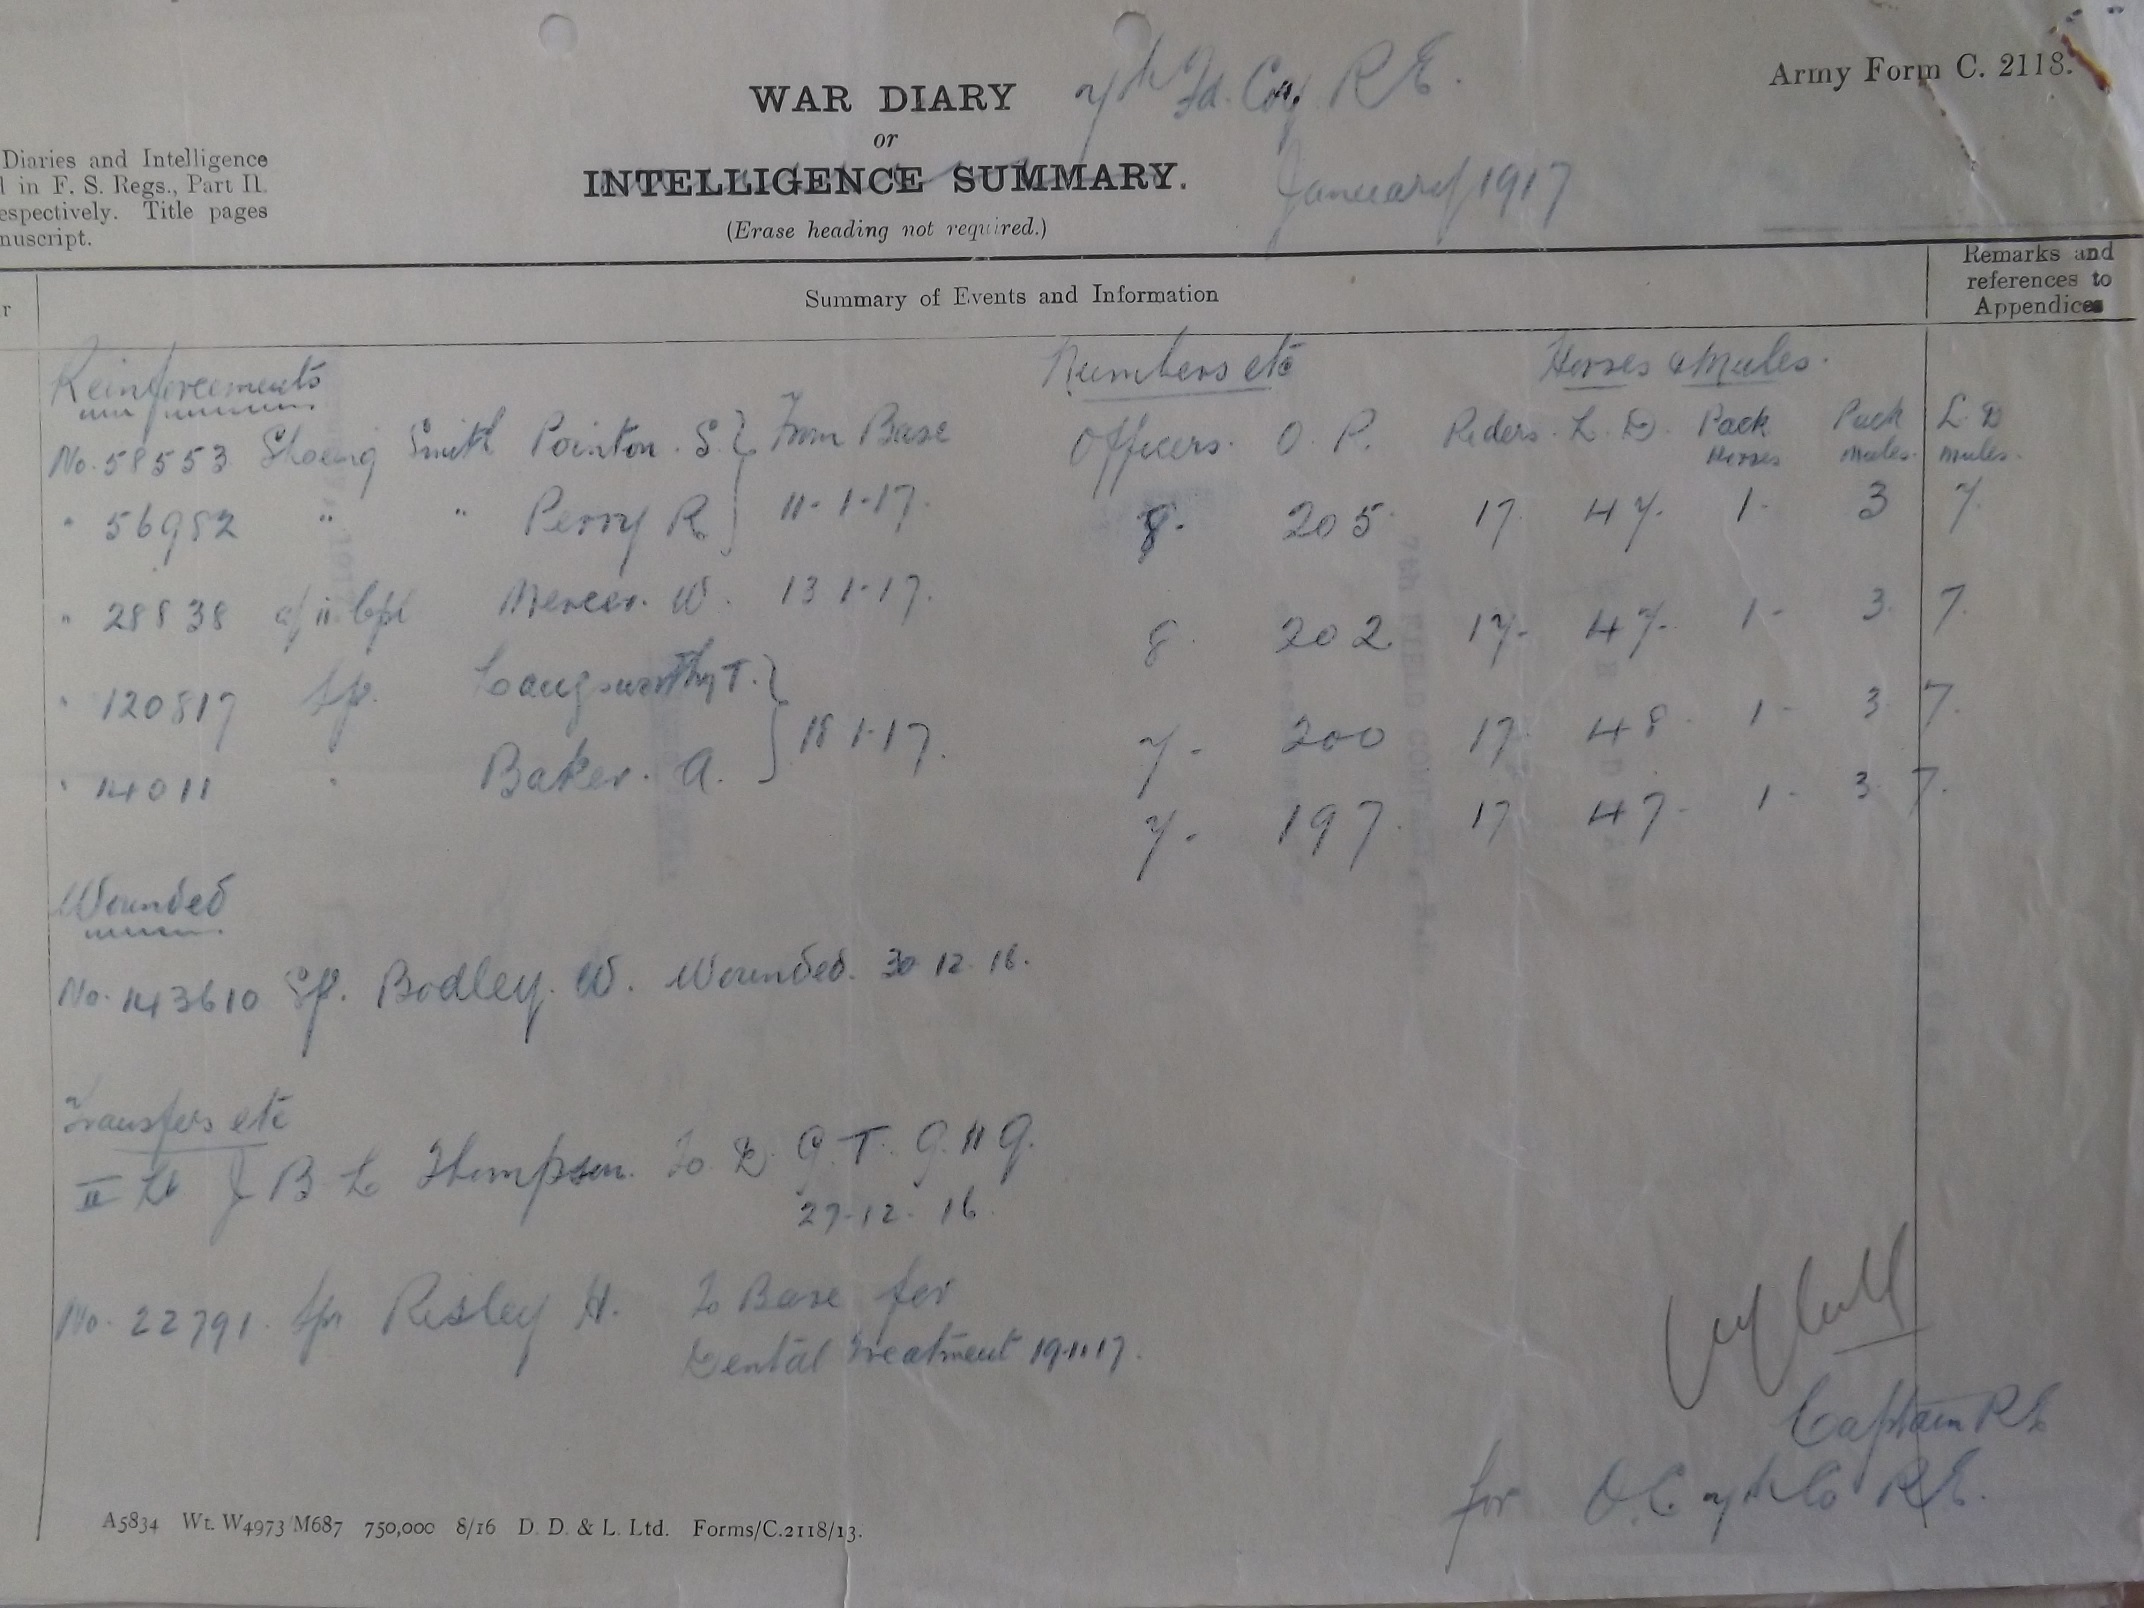 WAR DIARY 7th Fd. Coy. R.E.
Army Form C. 2118.
or
INTELLIGENCE SUMMARY.
January 1917
(Erase heading not required.)
Diaries and Intelligence
in F. S. Regs., Part II.
espectively. Title pages
nuscript.
r
Summary of Events and Information
Remarks and
references to
Appendices
Reinforcements
No. 58553 Shoeing Smith Pointon. S. } From Base
" 56952 " " Perry R } 11-1-17.
" 28838 a/ii Cpl Mercer. W. 13 1-17.
" 120817 Sp. Langworthy T. }
" 14011 " Baker. A. } 18 1-17.
Numbers etc Horses & Mules.
Officers. O. R. Riders. L. D. Pack Horses Pack mules. L. D mules.
8. 205 17 47. 1- 3 7.
8. 202 17- 47- 1- 3. 7.
7- 200 17 48 1- 3 7.
7- 197 17 47- 1- 3 7.
Wounded
No. 143610 Sp. Bodley. W. Wounded. 30 12. 16.
Transfers etc
II Lt J B L Thompson. To D. G. T. G.H.Q.
27-12-16
No. 22791. Spr Risley H. To Base for
Dental Treatment 19.1.17.
Captain R.E
for O.C. 7th Co R.E.
A5834 Wt. W4973/M687 750,000 8/16 D. D. & L. Ltd. Forms/C.2118/13.